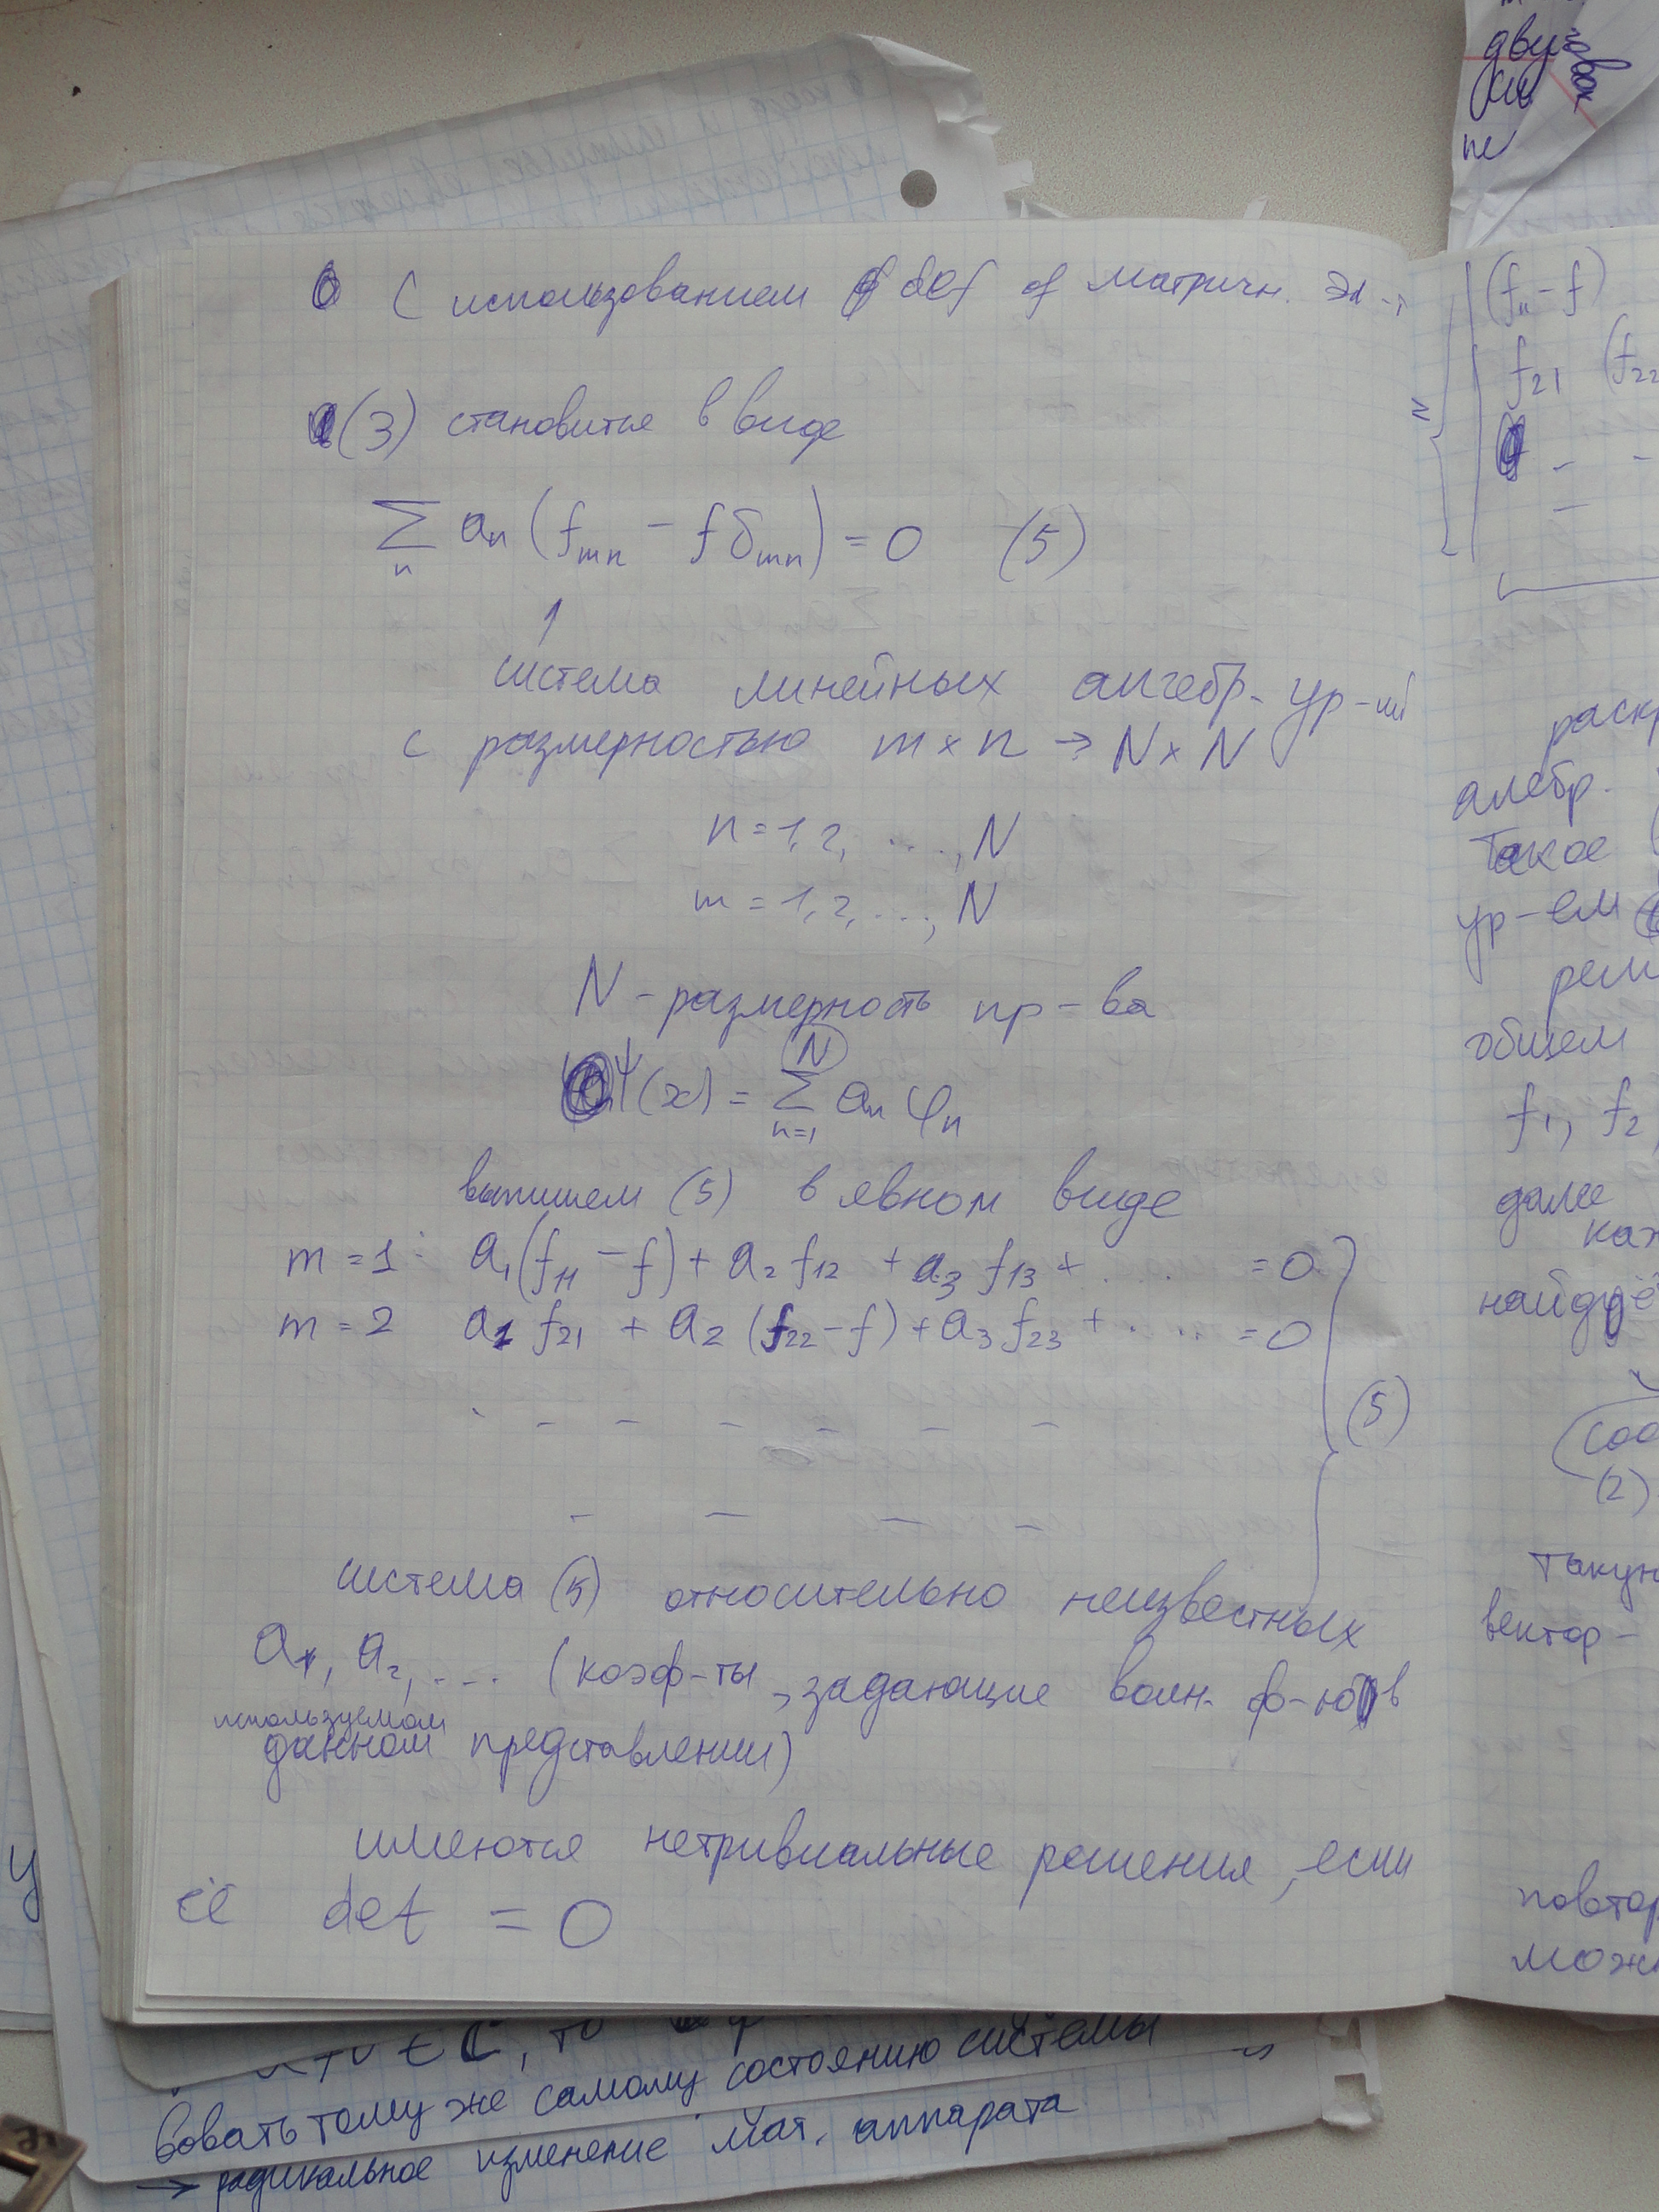 С использованием def of матричн. эл-
(3) становиться в виде
Σ aₙ (fₘₙ − f δₘₙ) = 0 (5)
n
система линейных алгебр. ур-ий
с размерностью m × n → N × N
n = 1, 2, ..., N
m = 1, 2, ..., N
N - размерность пр-ва
N
Ψ(x) = Σ aₙ φₙ
n=1
выпишем (5) в явном виде
m = 1: a₁(f₁₁ − f) + a₂ f₁₂ + a₃ f₁₃ + .... = 0
m = 2 a₁ f₂₁ + a₂ (f₂₂ − f) + a₃ f₂₃ + .... = 0
(5)
система (5) относительно неизвестных
a₁, a₂, .... (коэф-ты, задающие волн. ф-ю в
используемом
данном представлении)
имеются нетривиальные решения, если
её det = 0
(f₁₁ − f)
f₂₁ (f₂₂
раск
алебр.
Такое
ур-ем
реш
общем
f₁, f₂,
даже
каж
найдё
соо
(2)
такую
вектор-
повтор
можн
дву
пе
у
вовать тому же самому состоянию системы
→ радикальное изменение мат. аппарата